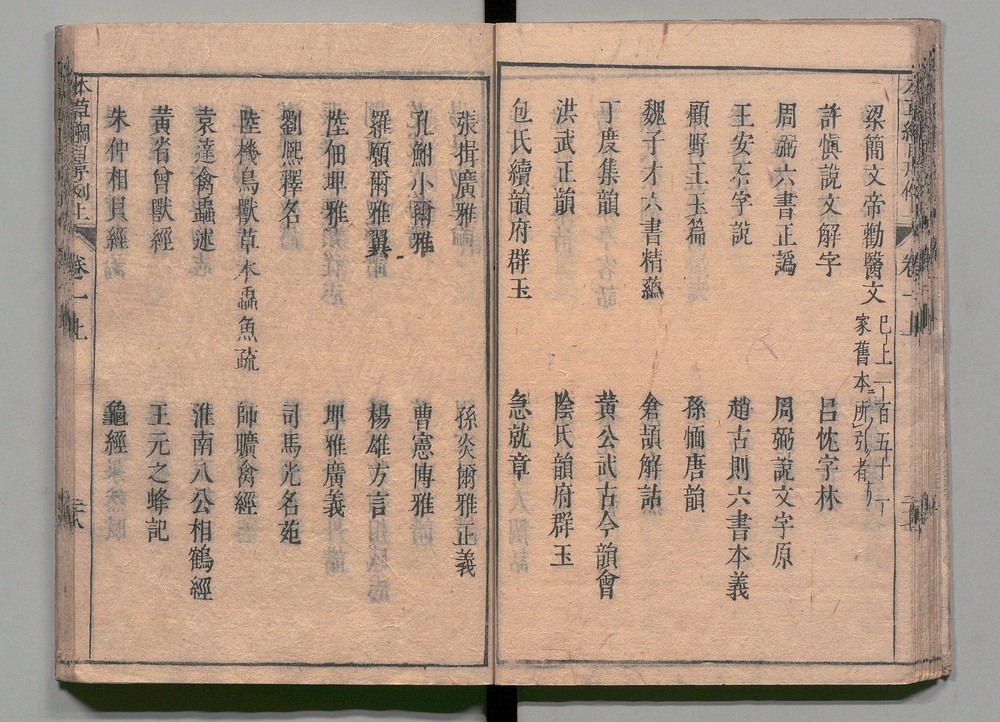 梁簡文帝勸醫文 巳上一百五十一
家舊本所引者
許愼說文解字 呂忱字林
周弼六書正譌 周弼說文字原
王安石字說 趙古則六書本義
顧野王玉篇 孫愐唐韻
魏子才六書精蘊 倉頡解詁
丁度集韻 黃公武古今韻會
洪武正韻 陰氏韻府群玉
包氏續韻府群玉 急就章
張揖廣雅 孫炎爾雅正義
孔鮒小爾雅 曹憲博雅
羅願爾雅翼 楊雄方言
陸佃埤雅 埤雅廣義
劉熈釋名 司馬光名苑
陸機鳥獸草木蟲魚疏 師曠禽經
袁達禽蟲述 淮南八公相鶴經
黃省曾獸經 王元之蜂記
朱仲相貝經 龜經
本草綱目序例上 卷一上